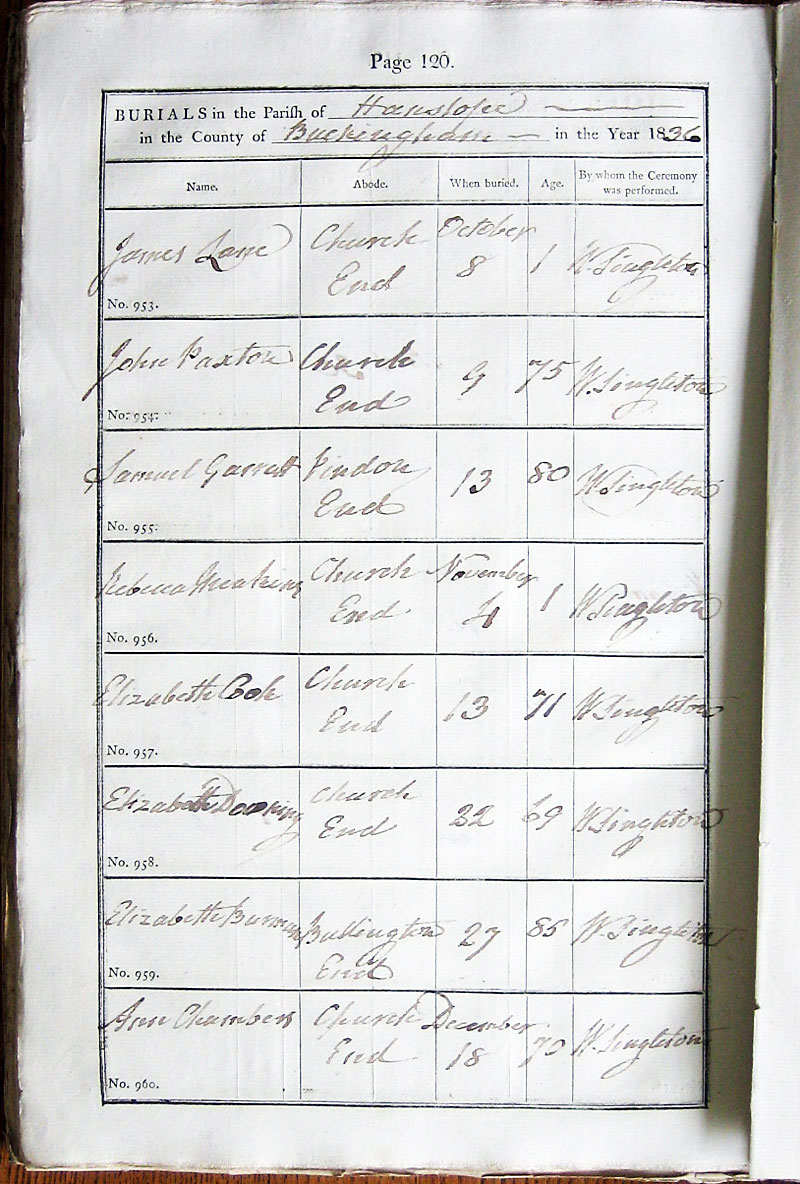 Page 120.
BURIALS in the Parish of Hanslope
in the County of Buckingham in the Year 1836
Name. Abode. When buried. Age. By whom the Ceremony was performed.
James Lane Church End October 8 1 W. Singleton
No. 953.
John Paxton Church End 9 75 W. Singleton
No. 954.
Samuel Garrett Pindon End 13 80 W. Singleton
No. 955.
Rebecca Meakins Church End November 4 1 W Singleton
No. 956.
Elizabeth Cook Church End 13 71 W Singleton
No. 957.
Elizabeth Church End 22 69 W Singleton
No. 958.
Elizabeth Bullington End 27 85 W. Singleton
No. 959.
Ann Chambers Church End December 18 70 W. Singleton
No. 960.